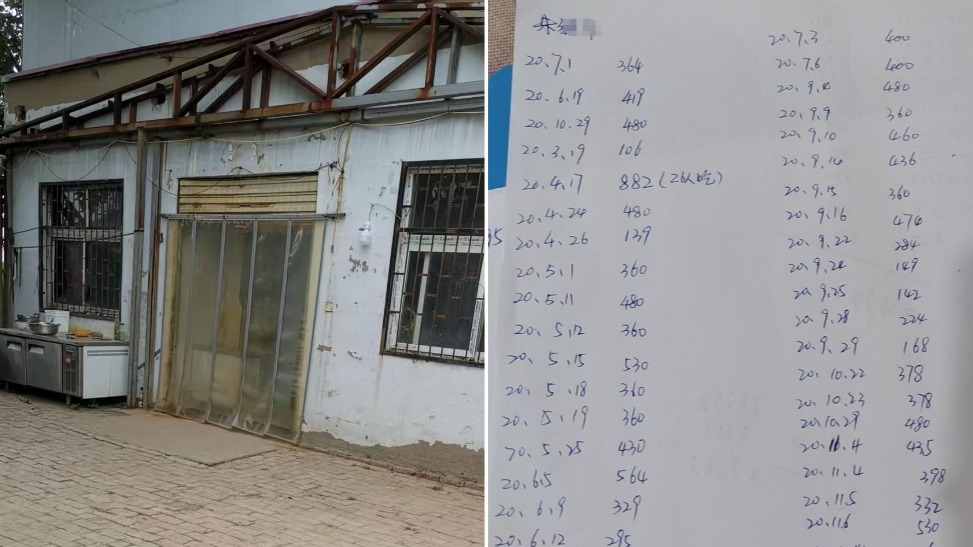 20.7.1 364
20.6.19 419
20.10.29 480
20.3.19 106
20.4.17 882(26人吃)
20.4.24 480
20.4.26 139
20.5.1 360
20.5.11 480
20.5.12 360
20.5.15 530
20.5.18 360
20.5.19 360
20.5.25 430
20.6.5 564
20.6.9 329
20.6.12 295
20.7.3 400
20.7.6 400
20.9.4 480
20.9.9 360
20.9.10 460
20.9.14 436
20.9.15 360
20.9.16 474
20.9.22 284
20.9.24 149
20.9.25 142
20.9.28 224
20.9.29 168
20.10.22 378
20.10.23 378
20.10.29 480
20.11.4 435
20.11.4 398
20.11.5 332
20.11.6 530